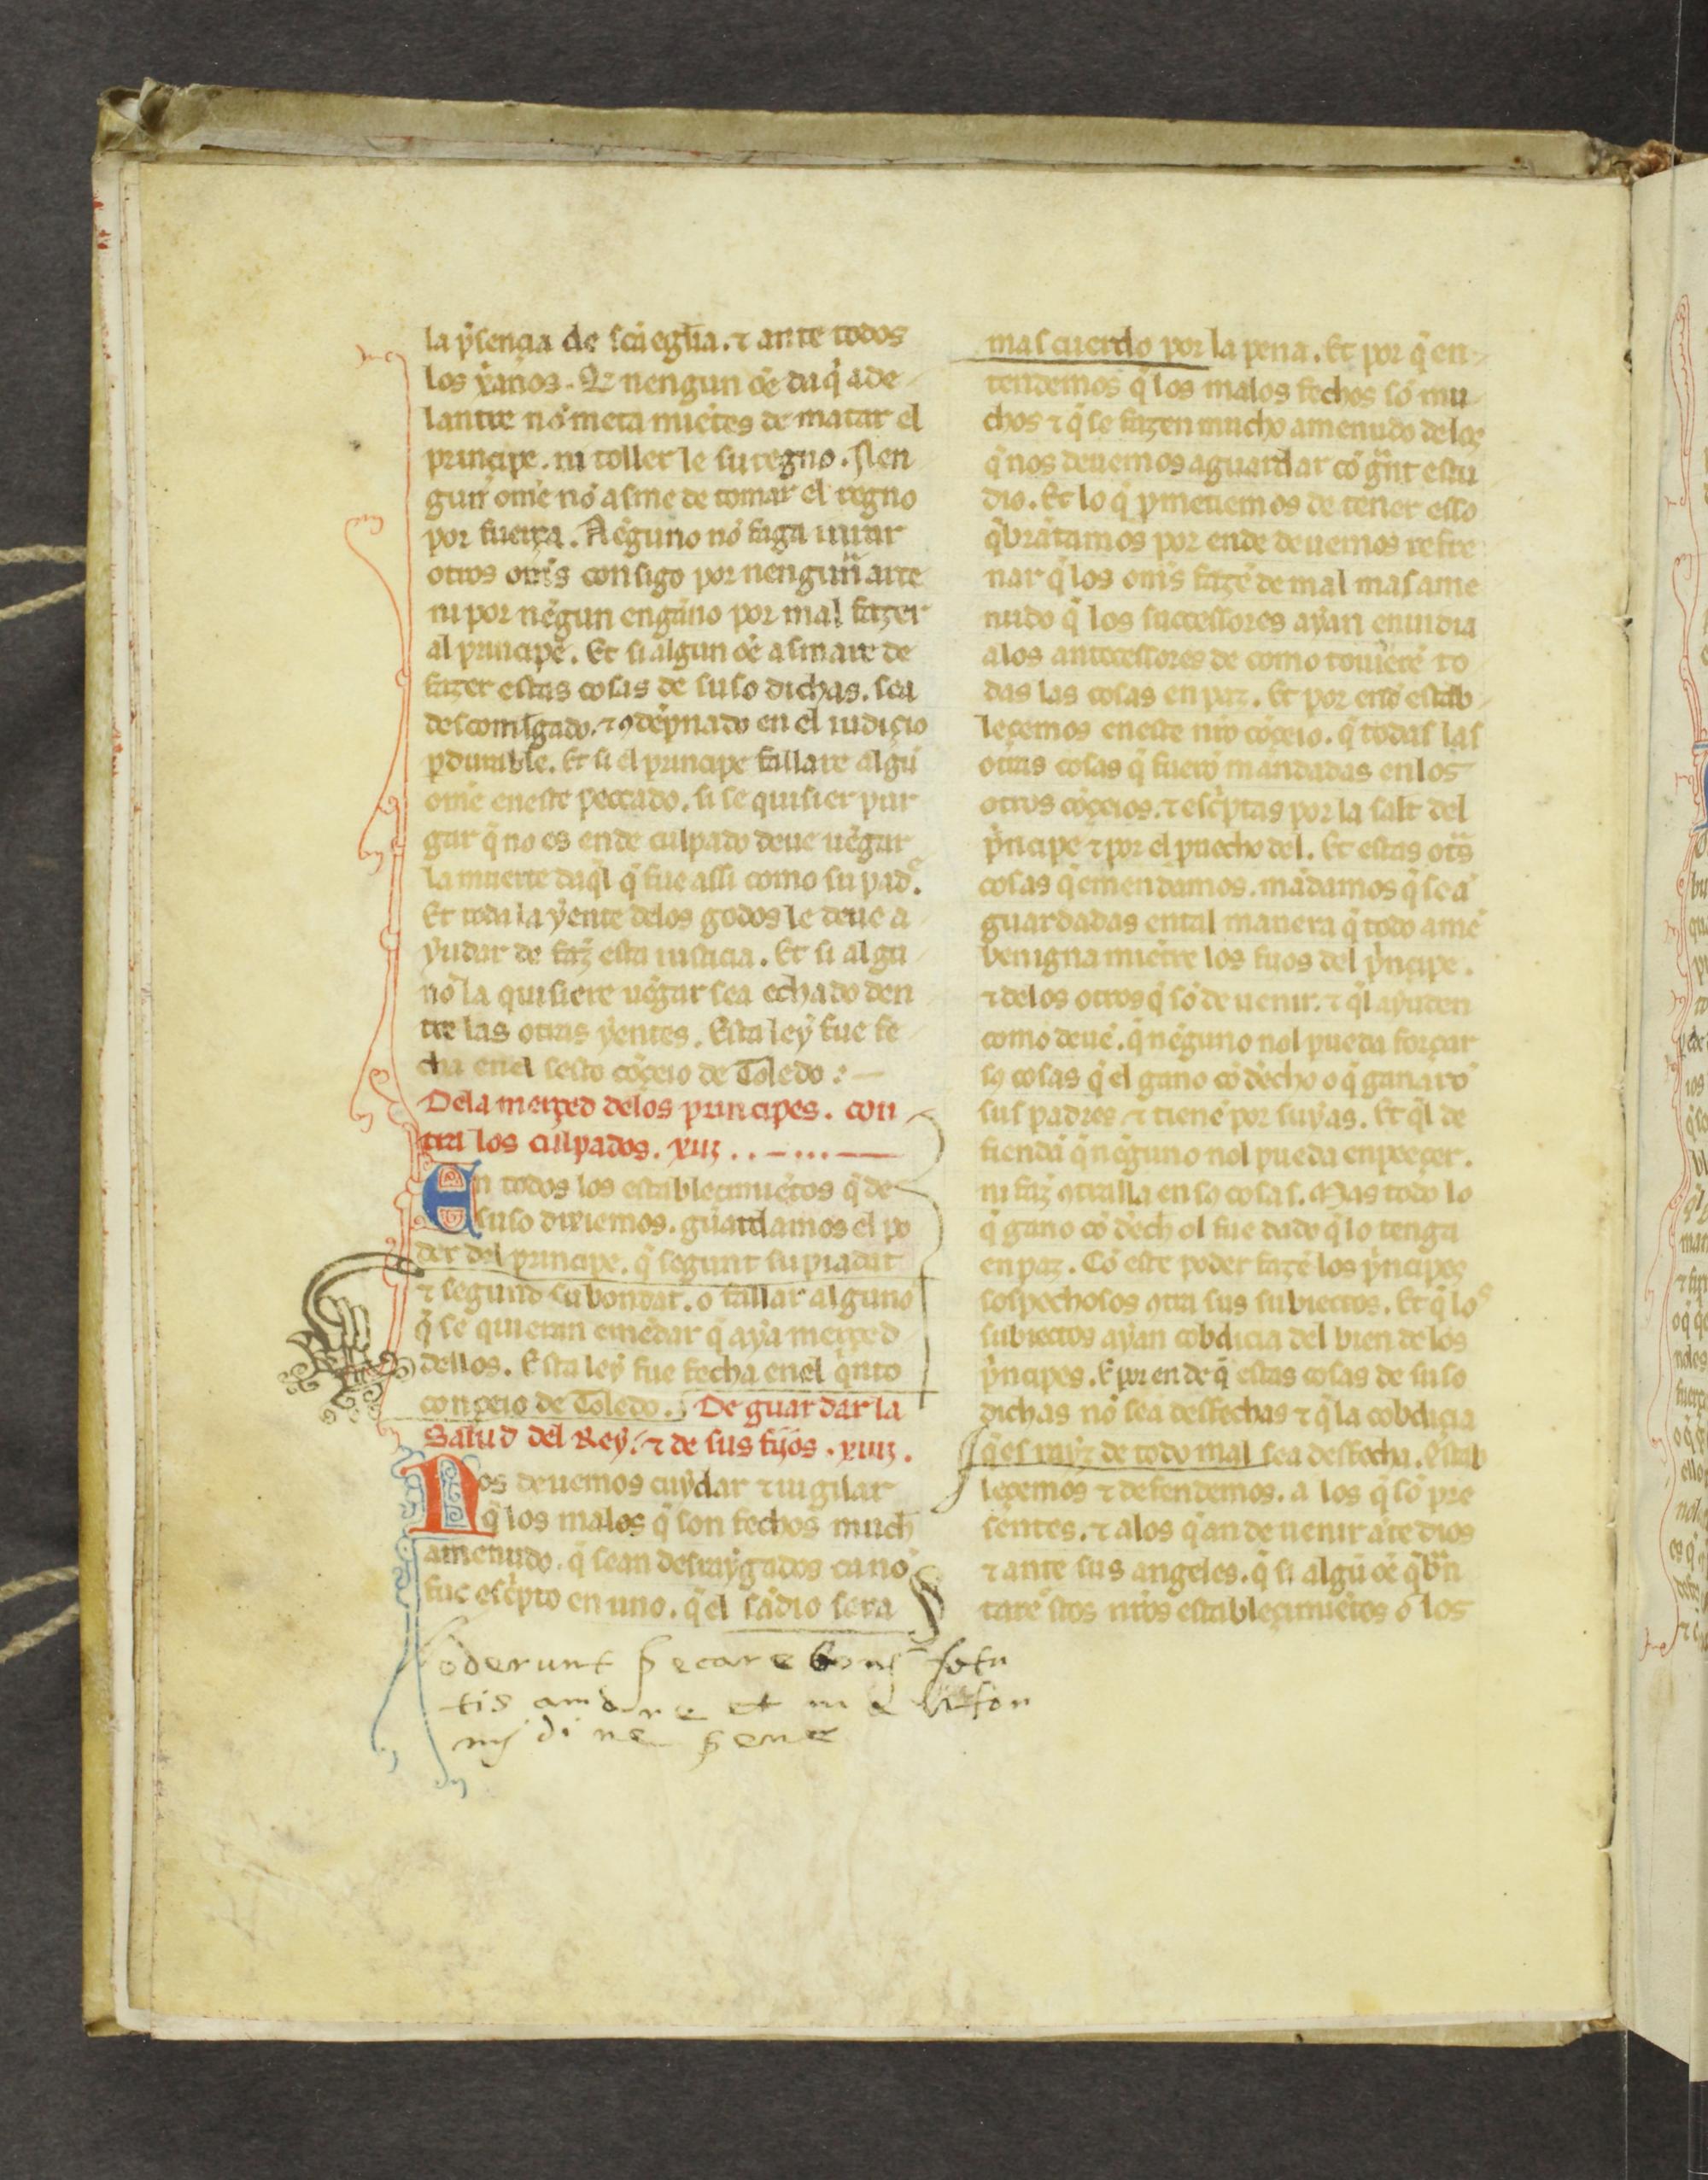 la p̃sençia de sc̃a eglia. ⁊ ante todos
los xp̃anos. Q̃ nengun oẽ daq̃ ade
lantre nõ meta miẽtes de matar el
prinçipe. ni toller le su regno. Nen
gun om̃e nõ asme de tomar el regno
por fuerça. Nẽguno nõ faga iurar
otros om̃s consigo por nengun arte
ni por nẽgun engãno por mal fazer
al prinçipe. Et si algun oẽ asmare de
fazer estas cosas de suso dichas. sea
descomĩgado. ⁊ ꝯdẽpnado en el iudiçio
ꝑdurable. Et si el prinçipe fallare algũ
om̃e eneste peccado. si se quisier pur
gar q̃ no es ende culpado deue uẽgar
la muerte daq̃l q̃ fue assi como su padre.
Et toda la yente delos godos le deue a
yudar de faz̃ esta iusticia. Et si algu
nõ la quisiere uẽgar sea echado den
tre las otras yentes. Esta ley fue fe
cha enel sesto cõçeio de Toledo:—
Dela merçed delos prinçipes. con
tra los culpados. xiij. . – ... —
En todos los estableçimiẽtos q̃ de
suso dixiemos. guardamos el po
der del prinçipe. q̃ segunt su piadat
⁊ segund su bondat. o fallar alguno
q̃ se quieran emẽdar q̃ aya merçed
dellos. Esta ley fue fecha enel q̃nto
conçeio de Toledo. De guardar la
Salud del Rey. ⁊ de sus fijos. xiiij.
Nos deuemos cuydar ⁊ uigilar
q̃ los malos q̃ son fechos much
amenudo. q̃ sean desraygados ca nõ
fue esc̃pto en uno. q̃ el sãdio sera
oderunt pecare boni
tis amore et
midine pene
mas cuerdo por la pena. Et por q̃ en
tendemos q̃ los malos fechos sõ mu
chos ⁊ q̃ se fazen mucho amenudo delos
q̃ nos deuemos aguardar cõ grãt estu
dio. Et lo q̃ ꝓmetiemos de tener esso
q̃brãtamos por ende deuemos refre
nar q̃ los om̃s fazẽ de mal mas ame
nudo q̃ los successores ayan enuidia
alos antecessores de como touierẽ to
das las cosas en paz. Et por esto estab
leçemos eneste nr̃o cõçeio. q̃ todas las
otras cosas q̃ fuerõ mandadas enlos
otros cõçeios. ⁊ esc̃ptas por la salt del
p̃nçipe ⁊ por el ꝓuecho del. Et estas otr̃s
cosas q̃ emendamos. mãdamos q̃ seã
guardadas en tal manera q̃ todo amẽ
benigna miẽtre los fiios del p̃nçipe.
⁊ delos otros q̃ sõ de uenir. ⁊ q̃l ayuden
como deuẽ. q̃ nẽguno nol pueda forçar
so cosas q̃ el gano cõ d̃echo o q̃ ganarõ
sus padres ⁊ tienẽ por suyas. Et q̃l de
fiendã q̃ nẽguno nol pueda enpeeçer.
ni faz̃ ꝯtralla en so cosas. Mas todo lo
q̃ gano cõ d̃ech ol fue dado q̃ lo tenga
en paz. Cõ este poder fazẽ los p̃nçipes
sospechosos ꝯtra sus subiectos. Et q̃ los
subiectos ayan cobdicia del bien delos
p̃nçipes. E por en de q̃ estas cosas de suso
dichas nõ sea desfechas ⁊ q̃ la cobdiçia
q̃ es rayz de todo mal sea desfecha. Estab
leçemos ⁊ defendemos. a los q̃ sõ pre
sentes. ⁊ alos q̃ an de uenir ãte dios
⁊ ante sus angeles. q̃ si algũ oẽ q̃brã
tare stos nr̃os estableçimiẽtos o los